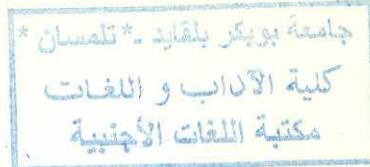 جامعة بوبكر بلقايد * تلمسان *
كلية الآداب و اللغات
مكتبة اللغات الأجنبية